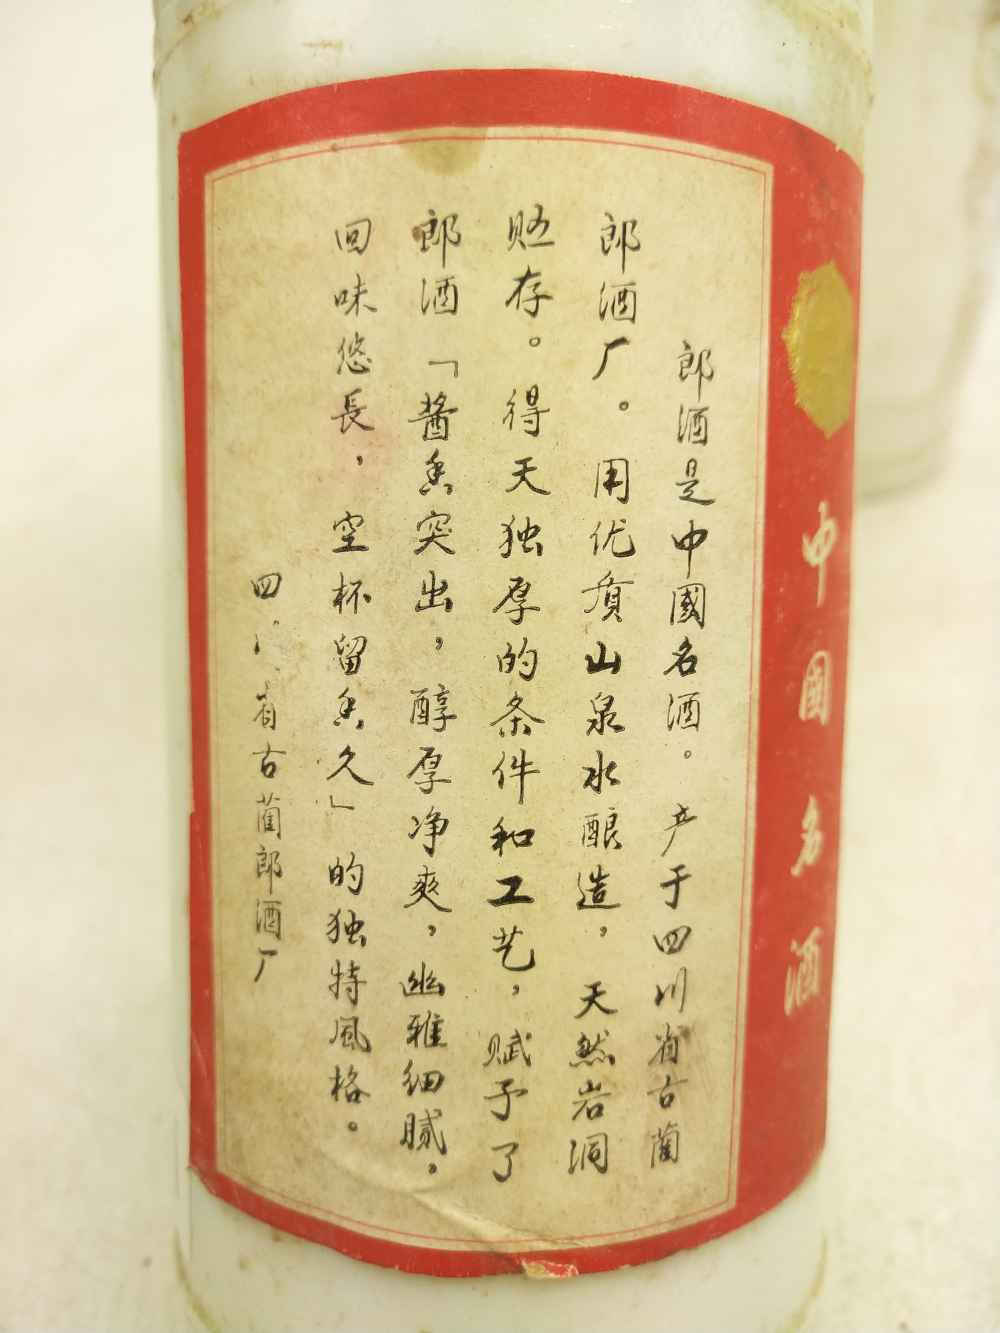 郎酒是中國名酒。产于四川省古蔺
郎酒厂。用优質山泉水酿造，天然岩洞
贮存。得天独厚的条件和工艺，赋予了
郎酒「酱香突出，醇厚净爽，幽雅细腻，
回味悠長，空杯留香久」的独特風格。
四川省古蔺郎酒厂
中國名酒